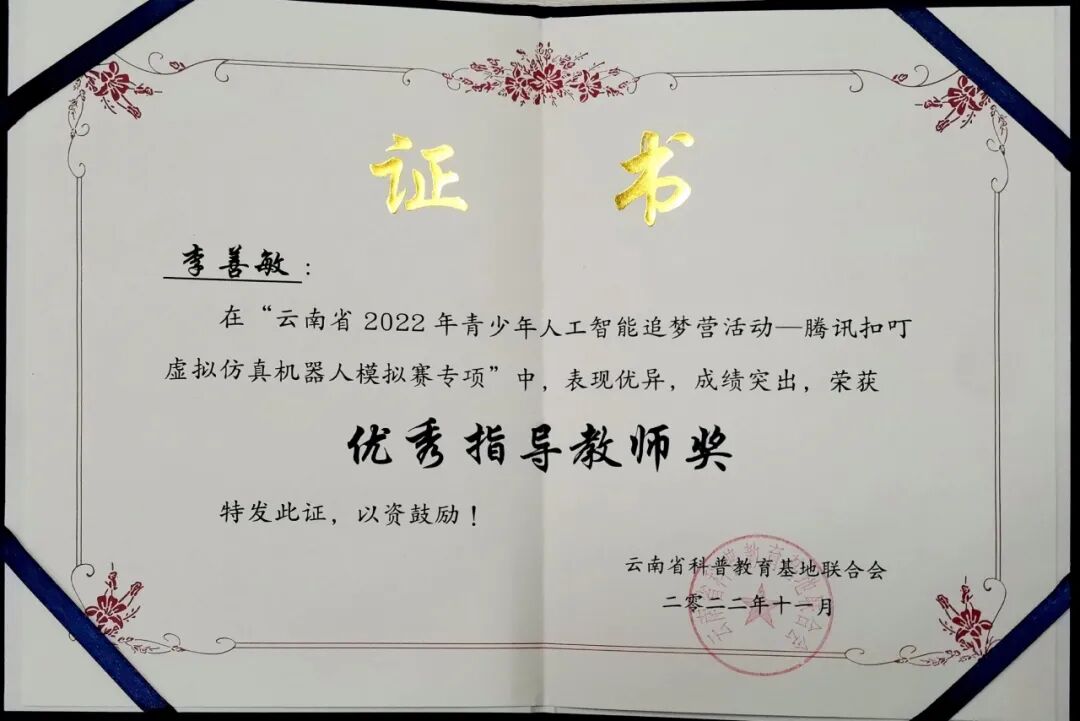 证书
李善敏：
在“云南省2022年青少年人工智能追梦营活动—腾讯扣叮
虚拟仿真机器人模拟赛专项”中，表现优异，成绩突出，荣获
优秀指导教师奖
特发此证，以资鼓励！
云南省科普教育基地联合会
二零二二年十一月
云南省科普教育基地联合会